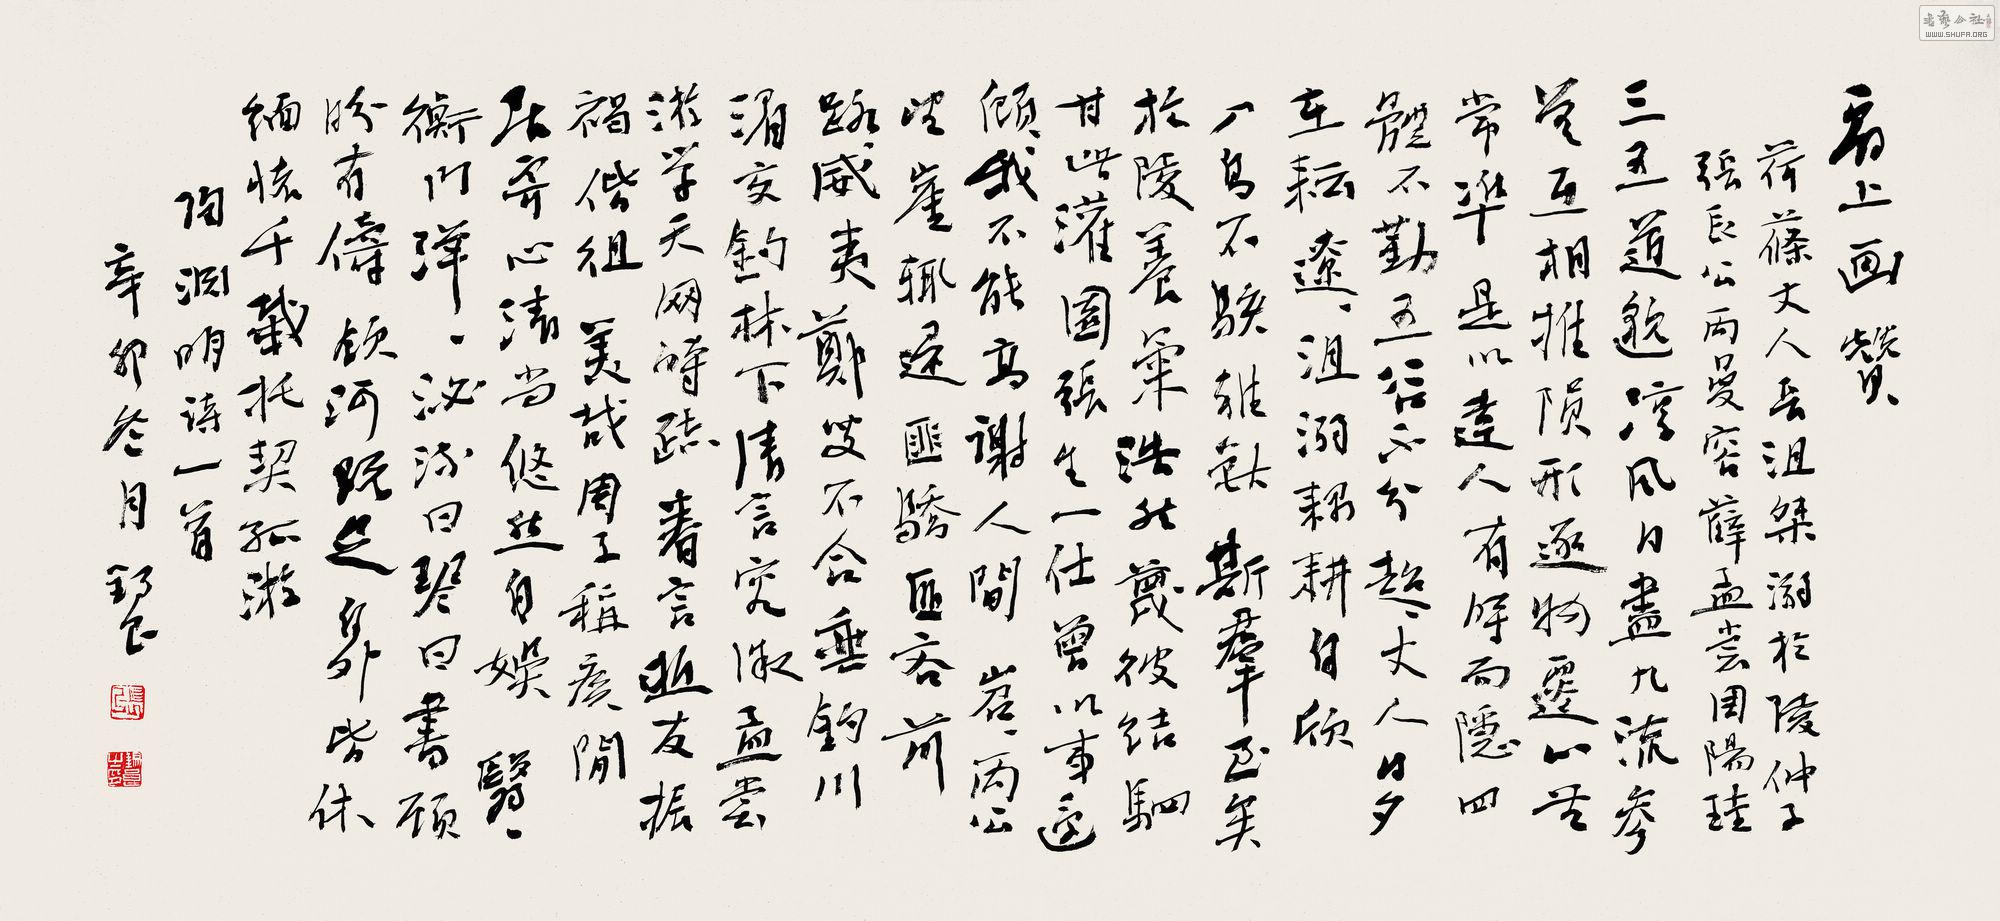 扇上画赞
荷蓧丈人長沮桀溺於陵仲子
張長公丙曼容薛孟尝周陽珪
三五道邈淳風日盡九流参
差互相推陨形逐物遷心无
常準是以達人有時而隱四
體不勤五谷不分超、丈人日夕
在耘遼、沮溺耦耕自欣
入鳥不駭雜獸斯羣至矣
於陵養氣浩然蔑彼结駟
甘此灌園張生一仕曾以事还
顾我不能高謝人間岧、丙公
望崖辄還匪驕匪吝前
路威夷鄭叟不合垂釣川
湄交酌林下清言究微孟尝
游学天网時疏眷言哲友振
褐偕徂美哉周子稱疾閒
居寄心清尚悠然自娱翳、
衡门洋、泌流曰琴曰書顾
盼有儔饮河既足自外皆休
缅懷千載托契孤游
陶渊明诗一首
辛卯冬月錫良
書藝公社
WWW.SHUFA.ORG